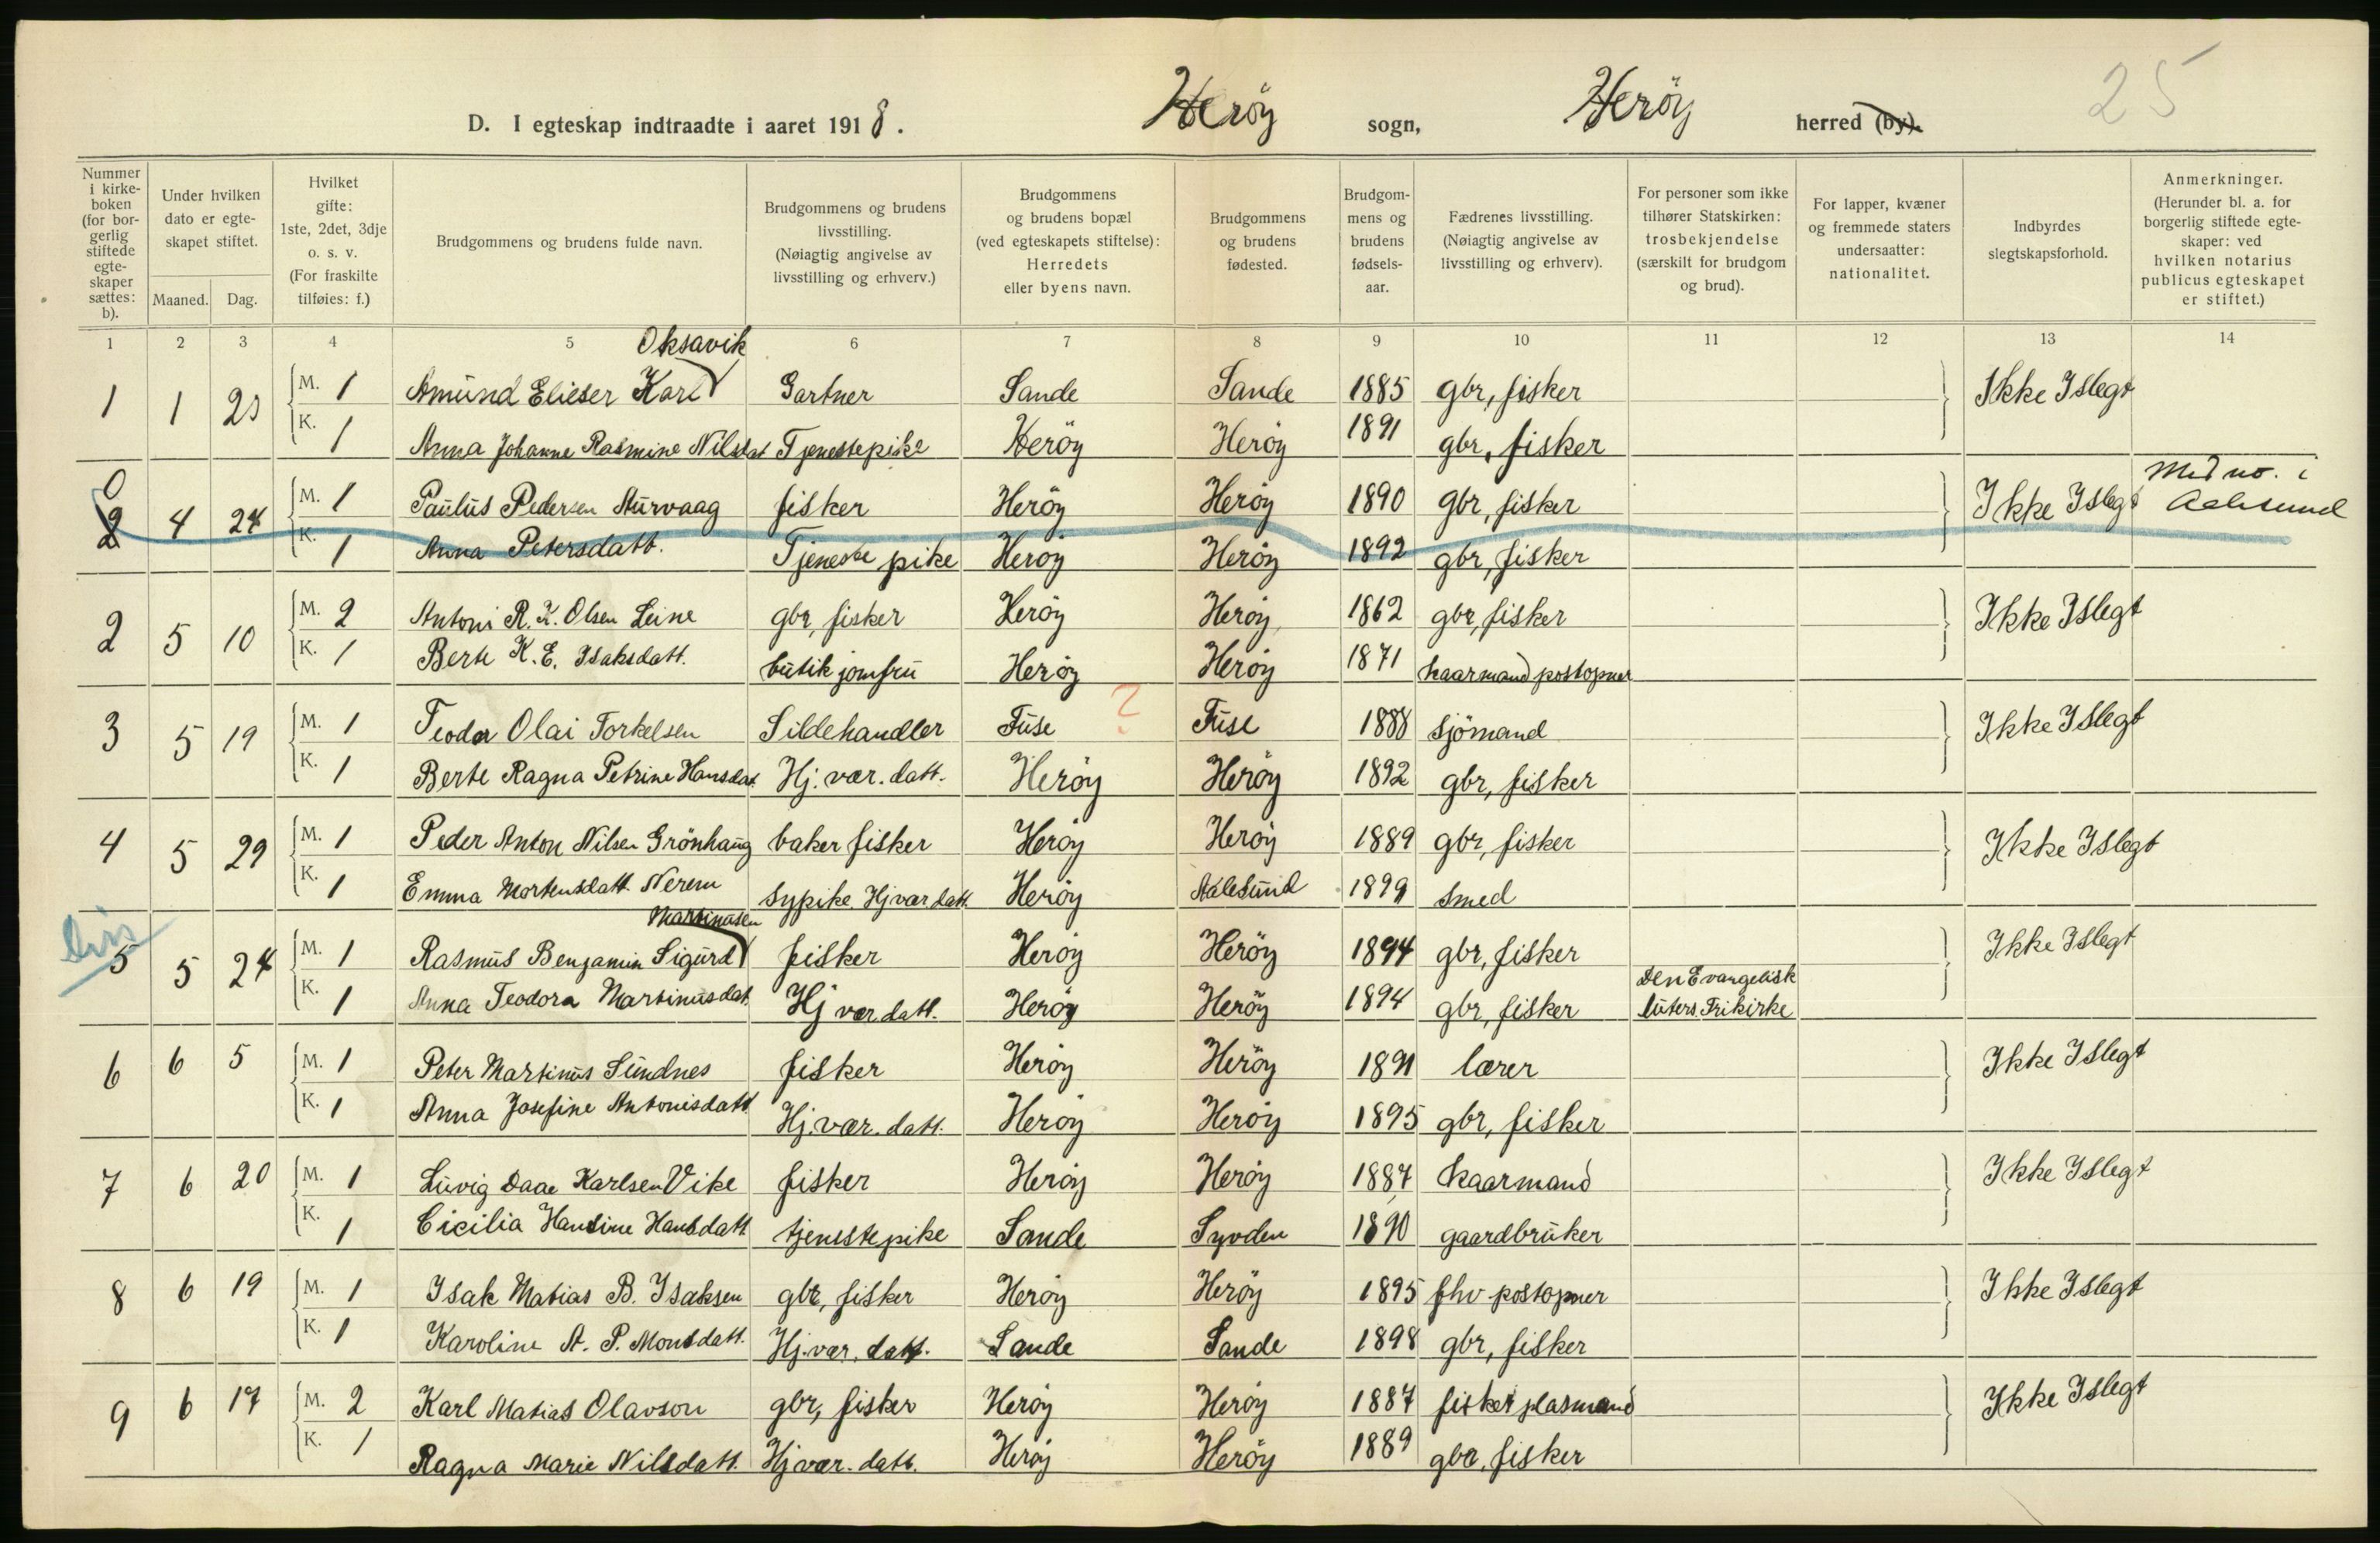 25
D. I egteskap indtraadte i aaret 1918. Heröy sogn, Heröy herred (by).
Nummer i kirkeboken (for borgerlig stiftede egteskaper sættes: b).
Under hvilken dato er egteskapet stiftet.
Maaned. Dag.
Hvilket gifte: 1ste, 2det, 3dje o. s. v. (For fraskilte tilføies: f.)
Brudgommens og brudens fulde navn.
Brudgommens og brudens livsstilling. (Nøiagtig angivelse av livsstilling og erhverv.)
Brudgommens og brudens bopæl (ved egteskapets stiftelse): Herredets eller byens navn.
Brudgommens og brudens fødested.
Brudgommens og brudens fødselsaar.
Fædrenes livsstilling. (Nøiagtig angivelse av livsstilling og erhverv).
For personer som ikke tilhører Statskirken: trosbekjendelse (særskilt for brudgom og brud).
For lapper, kvæner og fremmede staters undersaatter: nationalitet.
Indbyrdes slegtskapsforhold.
Anmerkninger. (Herunder bl. a. for borgerlig stiftede egteskaper: ved hvilken notarius publicus egteskapet er stiftet.)
1 2 3 4 5 6 7 8 9 10 11 12 13 14
Oksavik
1 1 23 M. 1 Amund Elieser Karl Gartner Sande Sande 1885 gbr, fisker Ikke Islegt
K. 1 Anna Johanne Rasmine Nilsdat Tjenestepike Heröy Heröy 1891 gbr, fisker
0 Med no. i
2 4 24 M. 1 Paulus Pedersen Aurvaag fisker Heröy Heröy 1890 gbr, fisker Ikke Islegt Aalesund
K. 1 Anna Petersdatt. Tjeneste pike Heröy Heröy 1892 gbr, fisker
2 5 10 M. 2 Antoni R. K. Olsen Leine gbr, fisker Heröy Heröy 1862 gbr, fisker Ikke Islegt
K. 1 Berte K. E. Isaksdatt. butik jomfru Heröy Heröy 1871 kaarmand postopner
3 5 19 M. 1 Teodor Olai Torkelsen Sildehandler Fuse ? Fuse 1888 sjömand Ikke Islegt
K. 1 Berte Ragna Petrine Hansdat. Hj. vær. datt. Heröy Heröy 1892 gbr, fisker
4 5 29 M. 1 Peder Anton Nilsen Grönhaug baker fisker Heröy Heröy 1889 gbr, fisker Ikke Islegt
K. 1 Emma Mortensdatt. Nerem sypike Hj vær datt. Heröy Aalesund 1899 smed
Martinusen
5 5 24 M. 1 Rasmus Benjamin Sigurd fisker Heröy Heröy 1894 gbr, fisker Ikke Islegt
K. 1 Anna Teodora Martinusdat. Hj vær datt. Heröy Heröy 1894 gbr, fisker Den Evangelisk luters Frikirke
6 6 5 M. 1 Peter Martinus Sundnes fisker Heröy Heröy 1891 lærer Ikke Islegt
K. 1 Anna Josefine Antonisdatt Hj. vær. datt. Heröy Heröy 1895 gbr, fisker
7 6 20 M. 1 Luvig Daae Karlsen Vike fisker Heröy Heröy 1887 kaarmand Ikke Islegt
K. 1 Cicilia Hansine Hansdatt. tjenestepike Sande Syvden 1890 gaardbruker
8 6 19 M. 1 Isak Matias B. Isaksen gbr, fisker Heröy Heröy 1895 fhv postopner Ikke Islegt
K. 1 Karoline A. P. Monsdatt. Hj. vær. datt. Sande Sande 1898 gbr, fisker
9 6 17 M. 2 Karl Matias Olavson gbr, fisker Heröy Heröy 1887 fisker plasmand Ikke Islegt
K. 1 Ragna Marie Nilsdatt. Hj vær. datt. Heröy Heröy 1889 gbr, fisker